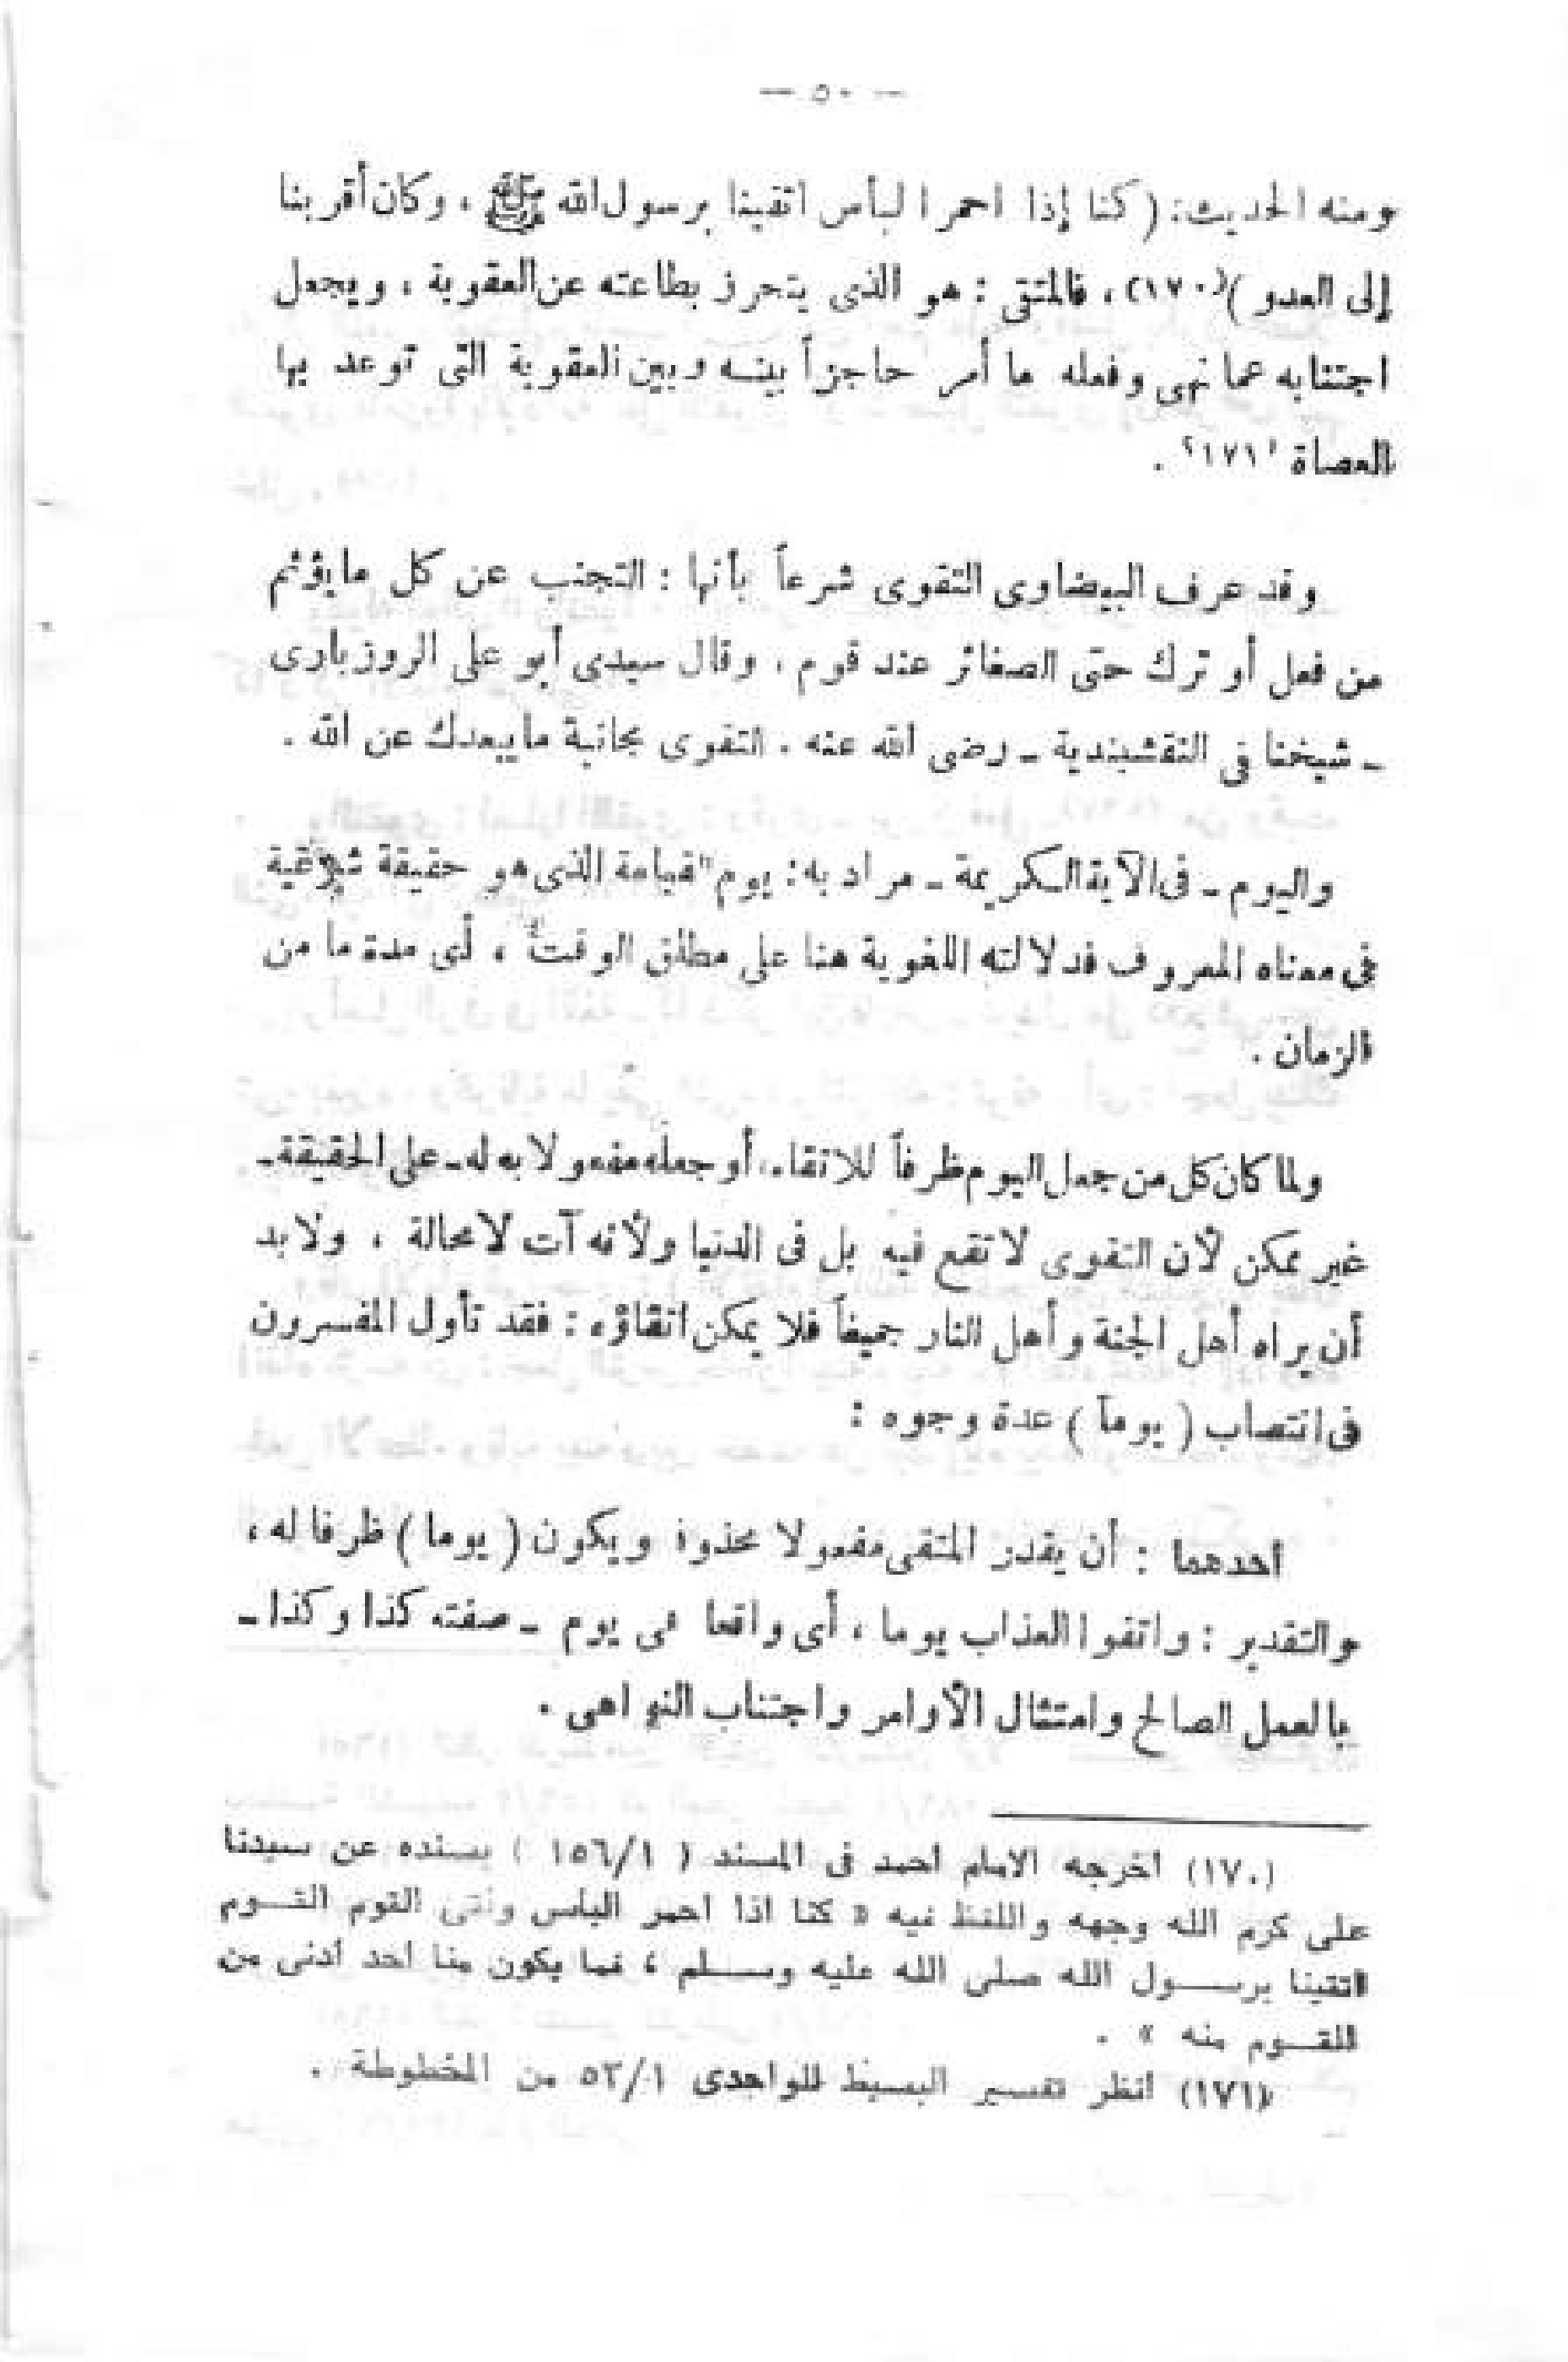 — ٥٠ —
ومنه الحديث: ( كنا إذا احمر البأس اتقينا برسول الله ﷺ ، وكان أقربنا
إلى العدو )(١٧٠)، فالمتقى : هو الذى يتحرز بطاعته عن العقوبة ، ويجعل
اجتنابه عما نهى وفعله ما أمر حاجزاً بينه وبين العقوبة التى توعد بها
العصاة (١٧١) .
وقد عرف البيضاوى التقوى شرعاً بأنها : التجنب عن كل ما يؤثم
من فعل أو ترك حتى الصغائر عند قوم ، وقال سيدى أبو على الروزبارى
ـ شيخنا فى النقشبندية ـ رضى الله عنه . التقوى مجانبة ما يبعدك عن الله .
واليوم ـ فى الآية الكريمة ـ مراد به : يوم القيامة الذى هو حقيقة شرعية
فى معناه المعروف فدلالته اللغوية هنا على مطلق الوقت ، أى مدة ما من
الزمان .
ولما كان كل من جعل اليوم ظرفاً للاتقاء، أو جعله مفعولا به له ـ على الحقيقة ـ
غير ممكن لأن التقوى لا تقع فيه بل فى الدنيا ولأنه آت لا محالة ، ولا بد
أن يراه أهل الجنة وأهل النار جميعاً فلا يمكن اتقاؤه : فقد تأول المفسرون
فى انتصاب ( يوماً ) عدة وجوه :
أحدهما : أن يقدر المتقى مفعولا محذوفا ويكون ( يوما ) ظرفا له ،
والتقدير : واتقوا العذاب يوما ، أى واقعا فى يوم ـ صفته كذا وكذا ـ
بالعمل الصالح وامتثال الأوامر واجتناب النواهى .
(١٧٠) اخرجه الامام احمد فى المسند ( ١/١٥٦ ) بسنده عن سيدنا
على كرم الله وجهه واللفظ فيه « كنا اذا احمر البأس ولقى القوم القوم
اتقينا برسول الله صلى الله عليه وسلم ، فما يكون منا احد أدنى من
القوم منه » .
(١٧١) انظر تفسير البسيط للواحدى ١/٥٣ من المخطوطة .